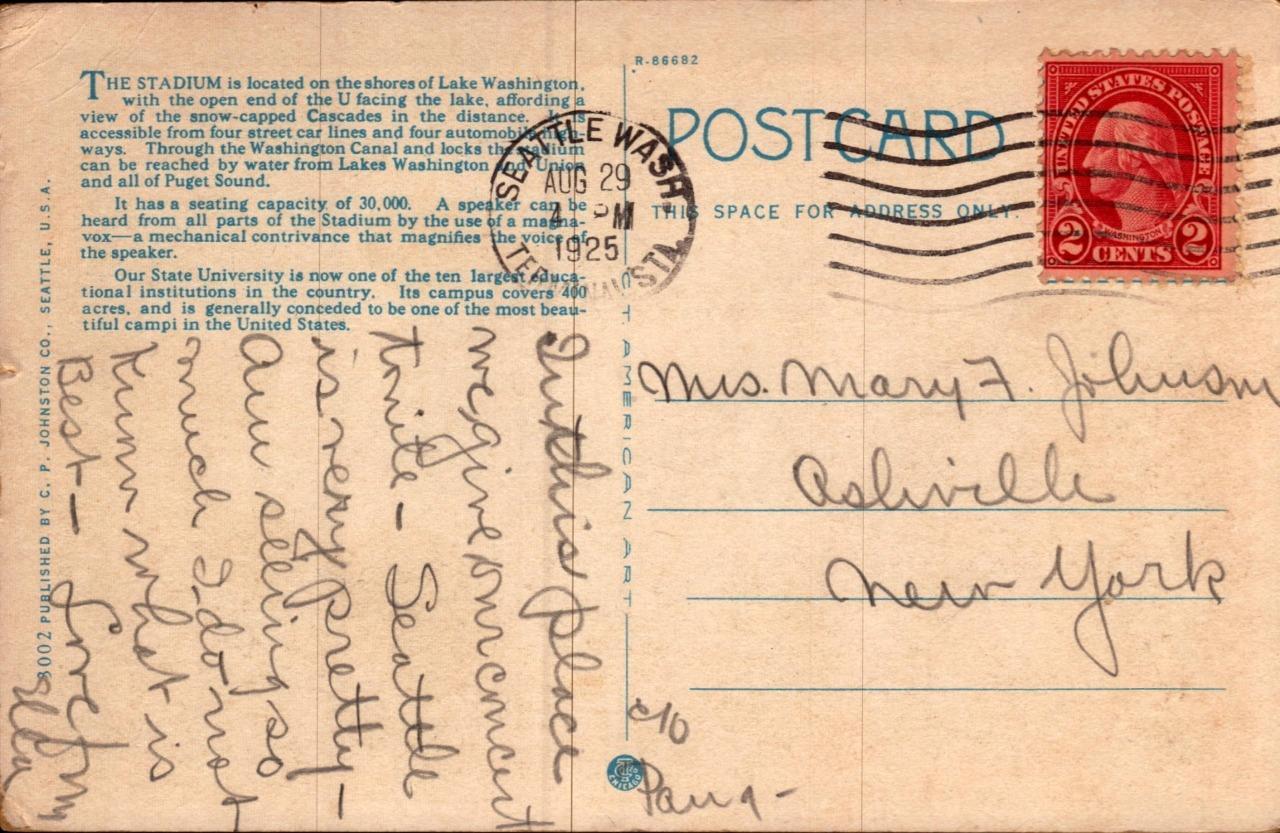 THE STADIUM is located on the shores of Lake Washington,
with the open end of the U facing the lake, affording a
view of the snow-capped Cascades in the distance. It is
accessible from four street car lines and four automobile high-
ways. Through the Washington Canal and locks the stadium
can be reached by water from Lakes Washington and Union
and all of Puget Sound.
It has a seating capacity of 30,000. A speaker can be
heard from all parts of the Stadium by the use of a magna-
vox—a mechanical contrivance that magnifies the voice of
the speaker.
Our State University is now one of the ten largest educa-
tional institutions in the country. Its campus covers 400
acres, and is generally conceded to be one of the most beau-
tiful campi in the United States.
In this place
we give our concert
tonite - Seattle
is very pretty -
Am seeing so
much I do not
know what is
Best - Love from
Ella
8002 PUBLISHED BY C. P. JOHNSTON CO., SEATTLE, U.S.A.
R-86682
POST CARD
THIS SPACE FOR ADDRESS ONLY.
SEATTLE WASH
AUG 29
4 - PM
1925
TERMINAL STA.
UNITED STATES POSTAGE
WASHINGTON
2 CENTS 2
C. T. AMERICAN ART
CHICAGO
Mrs. Mary F. Johnson
Ashville
New York
c/o